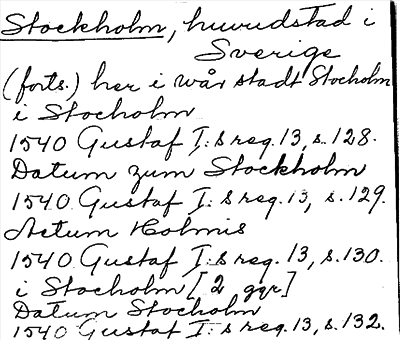 Stockholm, huvudstad i
Sverige
(forts.) her i wår stadt Stocholm
i Stocholm
1540 Gustaf I:s reg. 13, s. 128.
Datum zum Stockholm
1540 Gustaf I:s reg. 13, s. 129.
Actum Holmis
1540 Gustaf I:s reg. 13, s. 130.
i Stocholm [2 ggr]
Datum Stocholm
1540 Gustaf I:s reg. 13, s. 132.